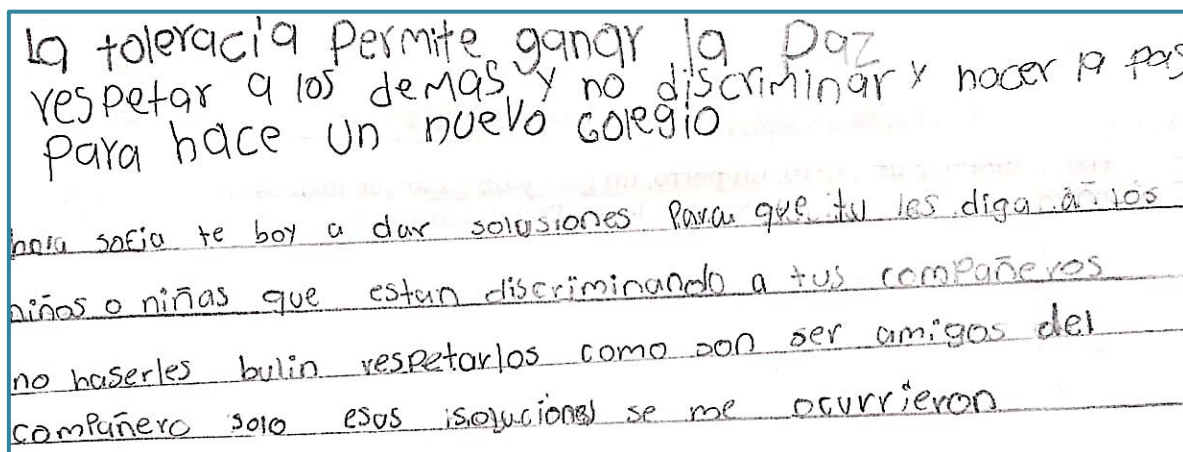 la toleracia Permite ganar la Paz
respetar a los demas y no discriminar y hacer la pas
Para hace un nuevo colegio
hola sofia te boy a dar solusiones Para que tu les diga a los
niños o niñas que estan discriminando a tus compañeros
no haserles bulin respetarlos como son ser amigos del
compañero solo esas soluciones se me ocurrieron